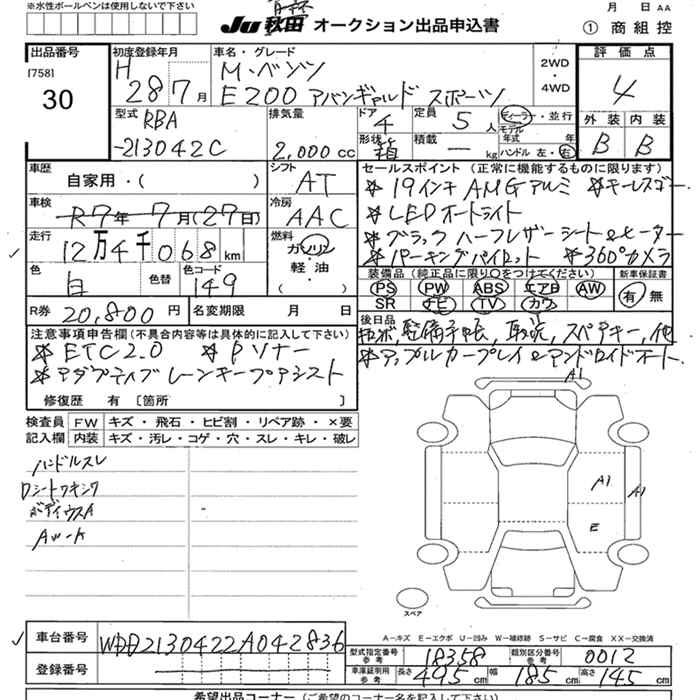 ※水性ボールペンは使用しないで下さい
JU 秋田 オークション出品申込書
月 日 AA
① 商 組 控
出品番号
[758]
30
初度登録年月
H 28年7月
車名・グレード
M・ベンツ
E200 アバンギャルド スポーツ
2WD
・
4WD
評価点
4
外装 内装
B B
型式
RBA
-213042C
排気量
2,000cc
ドア
4
形状
箱
定員
5人
積載
— kg
ディーラー・並行
モデル
年式 年
ハンドル 左・右
車歴
自家用・( )
シフト
AT
車検
R7年7月(27日)
冷房
AAC
走行
12万4千068km
燃料
ガソリン
軽・油
( )
色
白
色替
色コード
149
R券 20,800円
名変期限 月 日
セールスポイント (正常に機能するものに限ります)
※19インチAMGアルミ ※キーレスゴー
※LEDオートライト
※ブラックハーフレザーシート&ヒーター
※パーキングパイロット ※360°カメラ
装備品 (純正品に限り○をつけてください)
PS PW ABS エアB AW
SR ナビ TV カワ
新車保証書
有・無
後日品
記ボ, 整備手帳, 取説, スペアキー, 他
※アップルカープレイ&アンドロイドオート
注意事項申告欄(不具合内容等は具体的に記入して下さい)
※ETC2.0 ※Pソナー
※アダプティブレーンキープアシスト
修復歴 有 [箇所 ]
検査員
記入欄
FW キズ・飛石・ヒビ割・リペア跡・×要
内装 キズ・汚レ・コゲ・穴・スレ・キレ・破レ
ハンドルスレ
Dシートワキシワ
ボディウスA
A1
A1
A1
E
スペア
A-キズ E-エクボ U-凹み W-補修跡 S-サビ C-腐食 XX-交換済
車台番号
WDD2130422A042836
登録番号
型式指定番号
参考
18358
類別区分番号
参考
0012
車庫証明用
参考
長さ 495cm 幅 185cm 高さ 145cm
希望出品コーナー (ご希望のコーナー名を記入下さい)